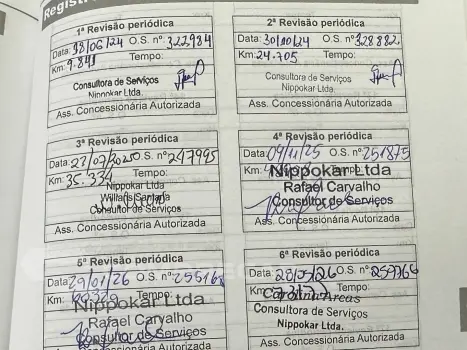 Registr
1ª Revisão periódica
Data: 18/06/24 O.S. nº 322934
Km: 9.841 Tempo:
Consultora de Serviços
Nippokar Ltda.
Ass. Concessionária Autorizada
2ª Revisão periódica
Data: 30/10/24 O.S. nº 328882
Km: 24.705 Tempo:
Consultora de Serviços
Nippokar Ltda.
Ass. Concessionária Autorizada
3ª Revisão periódica
Data: 22/07/2025 O.S. nº 247995
Km: 35.334 Tempo:
Nippokar Ltda
Willans Santana
Consultor de Serviços
Ass. Concessionária Autorizada
4ª Revisão periódica
Data: 04/11/25 O.S. nº 251875
Km: Tempo:
Nippokar Ltda
Rafael Carvalho
Consultor de Serviços
Ass. Concessionária Autorizada
5ª Revisão periódica
Data: 29/01/26 O.S. nº
Km: Tempo:
Nippokar Ltda
Rafael Carvalho
Consultor de Serviços
Ass. Concessionária Autorizada
6ª Revisão periódica
Data: O.S. nº
Km: Tempo:
Carolina Arcas
Consultora de Serviços
Nippokar Ltda.
Ass. Concessionária Autorizada